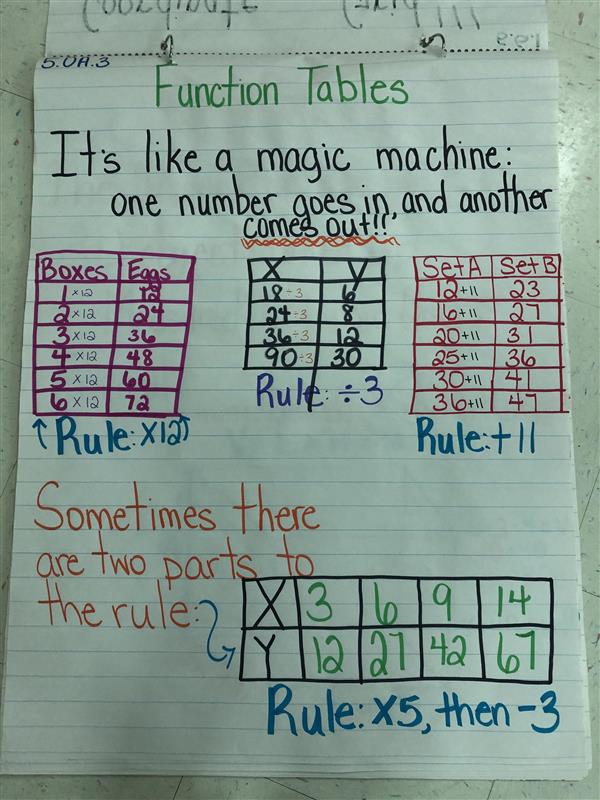 5.OA.3
Function Tables
It's like a magic machine:
one number goes in, and another
comes out!!
Boxes Eggs
1 ×12 12
2 ×12 24
3 ×12 36
4 ×12 48
5 ×12 60
6 ×12 72
↑ Rule: ×12 ↑
X Y
18 ÷3 6
24 ÷3 8
36 ÷3 12
90 ÷3 30
Rule: ÷3
Set A Set B
12 +11 23
16 +11 27
20 +11 31
25 +11 36
30 +11 41
36 +11 47
Rule: +11
Sometimes there
are two parts to
the rule:
X 3 6 9 14
Y 12 27 42 67
Rule: ×5, then -3